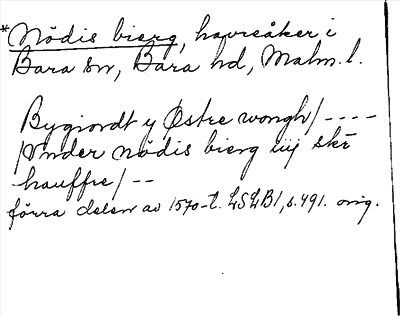 *Nödis bierg, havreåker i
Bara sn, Bara hd, Malm. l.
Bygiordt y Østre wongh/ ----
/Vnder nödis bierg iiij skē
hauffre/ --
förra delen av 1570-t. LSLB1, s. 491. orig.